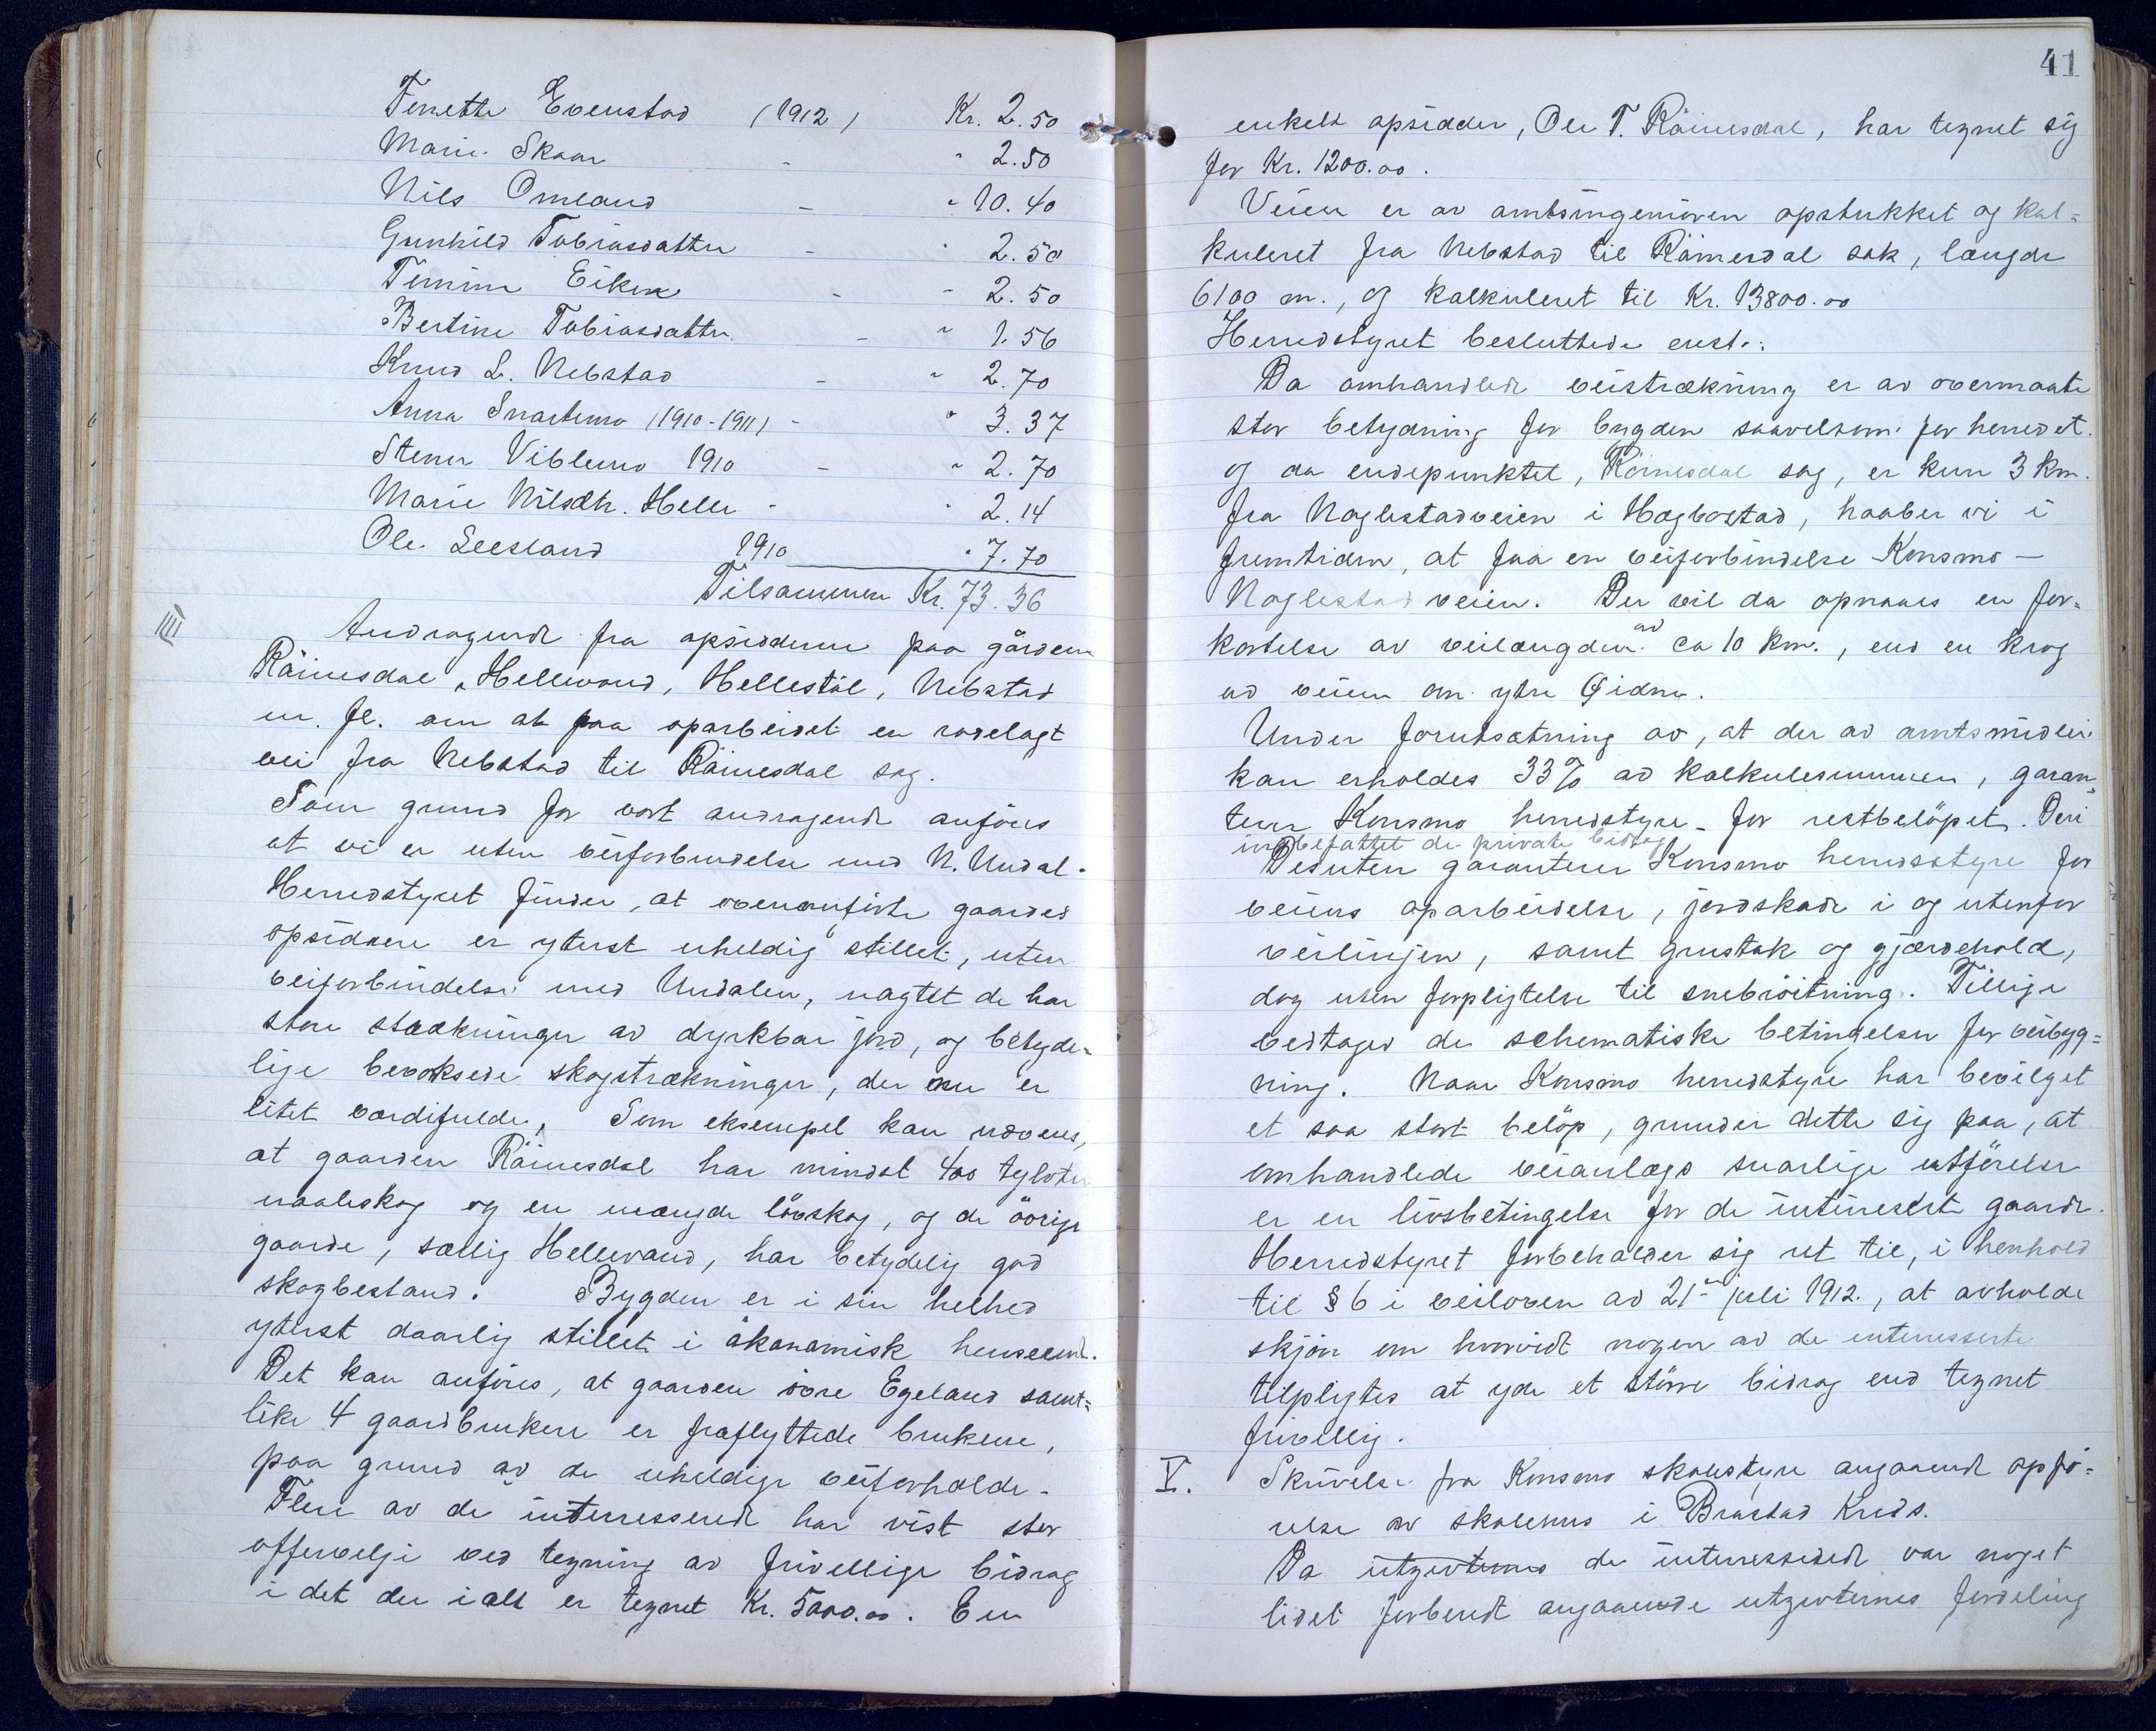 Tenette Evenstad (1912) Kr. 2.50
Marie Skaar - " 2.50
Nils Omland - " 10.40
Gunhild Tobiasdatter - " 2.50
Timine Eiken - " 2.50
Bertine Tobiasdatter - " 1.56
Knud L. Nebstad - " 2.70
Anna Snartemo (1910-1911) - " 3.37
Stener Viblemo 1910 - " 2.70
Marie Nilsdtr. Helle - " 2.14
Ole Seesland 1910 " 7.70
Tilsammen Kr. 73.36
III) Andragende fra opsidderne paa gårdene
Råinesdal, Hellevand, Hellestöl, Nebstad
m. fl. om at faa oparbeidet en rodelagt
vei fra Nebstad til Råinesdal sag.
Som grund for vort andragende anföres
at vi er uten veiforbindelse med N. Undal.
Herredstyret finder, at ovenanförte gaardes
opsiddere er yterst uheldig stillet, uten
veiforbindelse med Undalen, uagtet de har
store strækninger av dyrkbar jord, og betyde=
lige bevoksede skogstrækninger, der nu er
litet værdifulde, Som eksempel kan nævnes,
at gaarden Råinesdal har mindst 400 tylvter
naaleskog og en mængde lövskog, og de övrige
gaarde, særlig Hellevand, har betydelig god
skogbestand. Bygden er i sin helhed
yterst daarlig stillet i åkonomisk henseende.
Det kan anföres, at gaarden övre Egeland samt=
like 4 gaardbrukere er fraflyttede brukene,
paa grund av de uheldige veiforholde.
Flere av de interesserede har vist stor
offervelje ved tegning av frivellige bidrag
i det der i alt er tegnet Kr. 5000.00. En
41
enkelt opsidder, Ole T. Råinesdal, har tegnet sig
for Kr. 1200.00.
Veien er av amtsingeniören opstukket og kal=
kuleret fra Nebstad til Råinesdal sak, længde
6100 m., og kalkuleret til Kr. 13800.00
Herredstyret besluttede enst.:
Da omhandlede veistrækning er av overmaate
stor betydning for bygden saavelsom for herredet.
og da endepunktet, Råinesdal sag, er kun 3 km.
fra Naglestadveien i Hægbostad, haaber vi i
fremtiden, at faa en veiforbindelse Konsmo -
Naglestadveien. Der vil da opnaaes en for=
kortelse av veilængden av ca 10 km., end en krog
ad veien om ytre Øidne.
Under forutsætning av, at der av amtsmidler
kan erholdes 33% av kalkulesummen, garan=
terer Konsmo herredstyre for restbelöpet. Deri
inbefattet de private bidrag
Desuten garanterer Konsmo herredsstyre for
veiens oparbeidelse, jordskade i og utenfor
veilinjen, samt grustak og gjærdehold,
dog uten forpligtelse til snebröitning. Tillige
vedtages de schematiske betingelser for veibyg=
ning. Naar Konsmo herredstyre har bevilget
et saa stort belöp, grunder dette sig paa, at
omhandlede veianlægs snarlige utförelse
er en livsbetingelse for de interesserte gaarde.
Herredstyret forbeholder sig ret til, i henhold
til § 6 i veiloven av 21de juli 1912., at avholde
skjön om hvorvidt nogen av de interesserte
tilpligtes at yde et större bidrag end tegnet
frivellig.
V. Skrivelse fra Konsmo skolestyre angaaende opfö=
relse av skolehus i Brastad Kreds.
Da utgivternes de interesserede var noget
lidet forberedt angaaende utgivternes fordeling